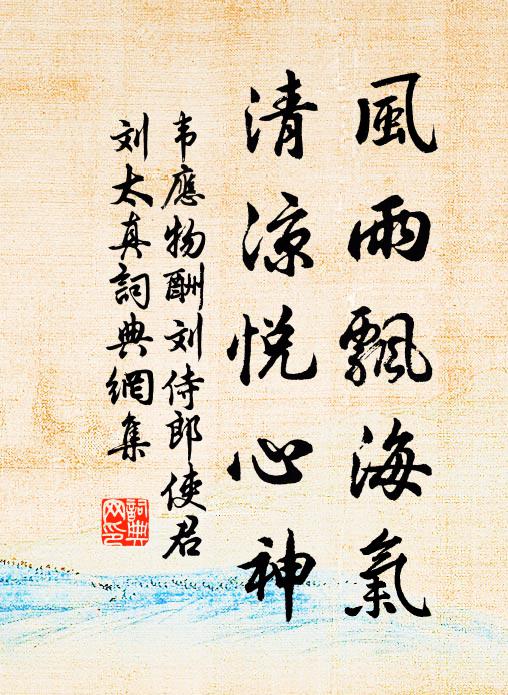 風雨飄海氣
清涼悦心神
韦應物酬刘侍郎使君
刘太真詞典網集
詞典
网印